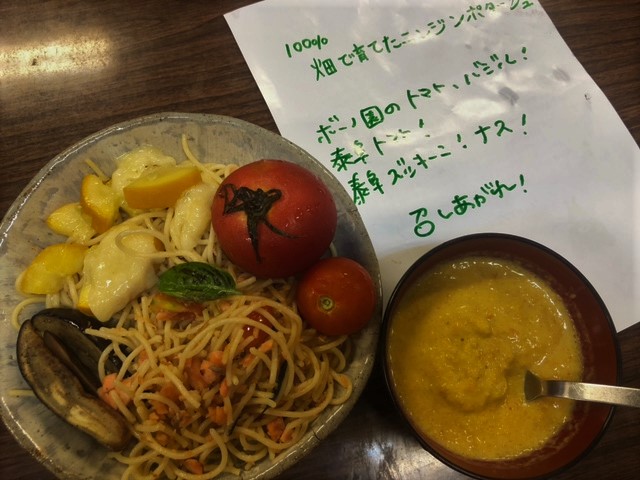 100%
畑で育てたニンジンポタージュ
ボーノ国のトマト、バジル！
泰阜トマト！
泰阜ズッキーニ！ナス！
召しあがれ！